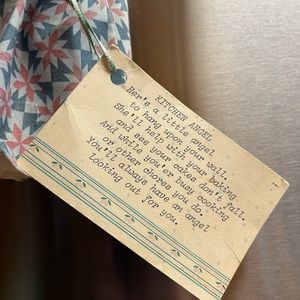 KITCHEN ANGEL
Her's a little angel
to hang upon your wall.
She'll help with your baking
and see your cakes don't fall.
And while you'er busy cooking
or other chores you do.
You'll always have an angel
looking out for you.